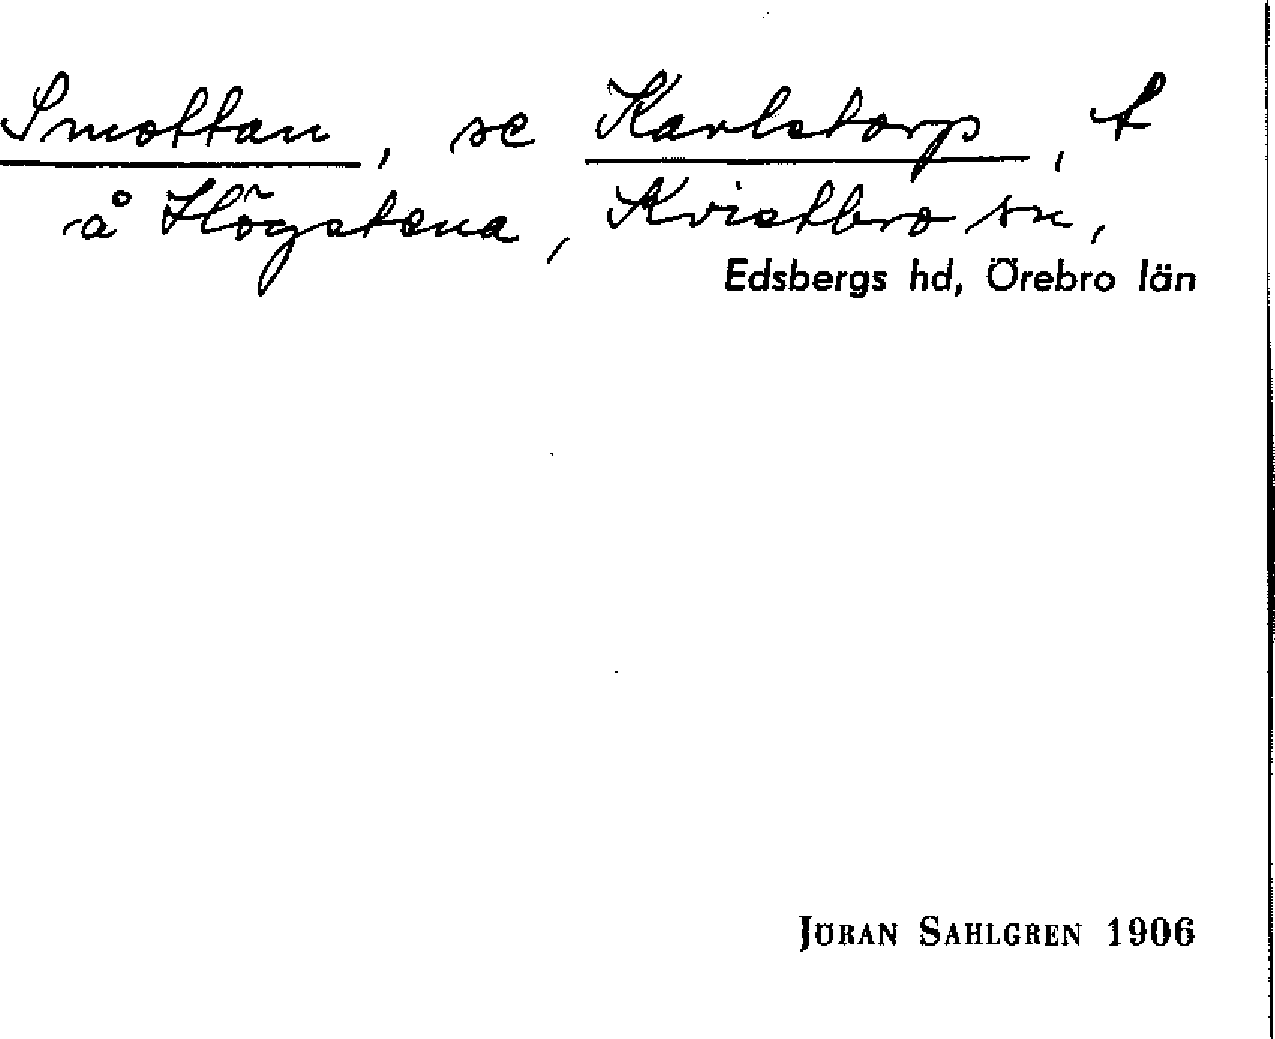 Smottan, se Karlstorp, t
å Högstena, Kvistbro sn,
Edsbergs hd, Örebro län
JÖRAN SAHLGREN 1906